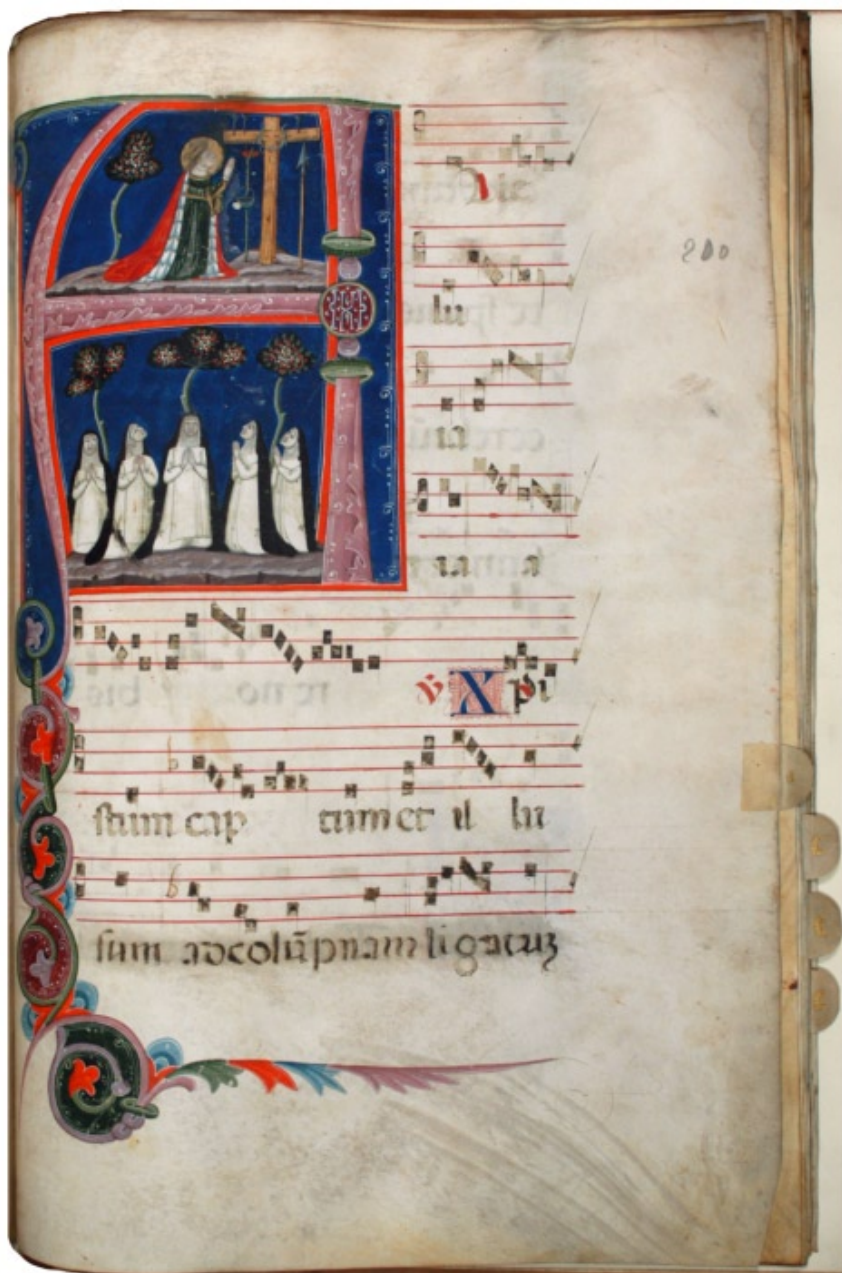 A
200
lu
ia
ia a
℣ Xpi
stum cap tum et il lu
sum ad colūpnam ligatuʒ